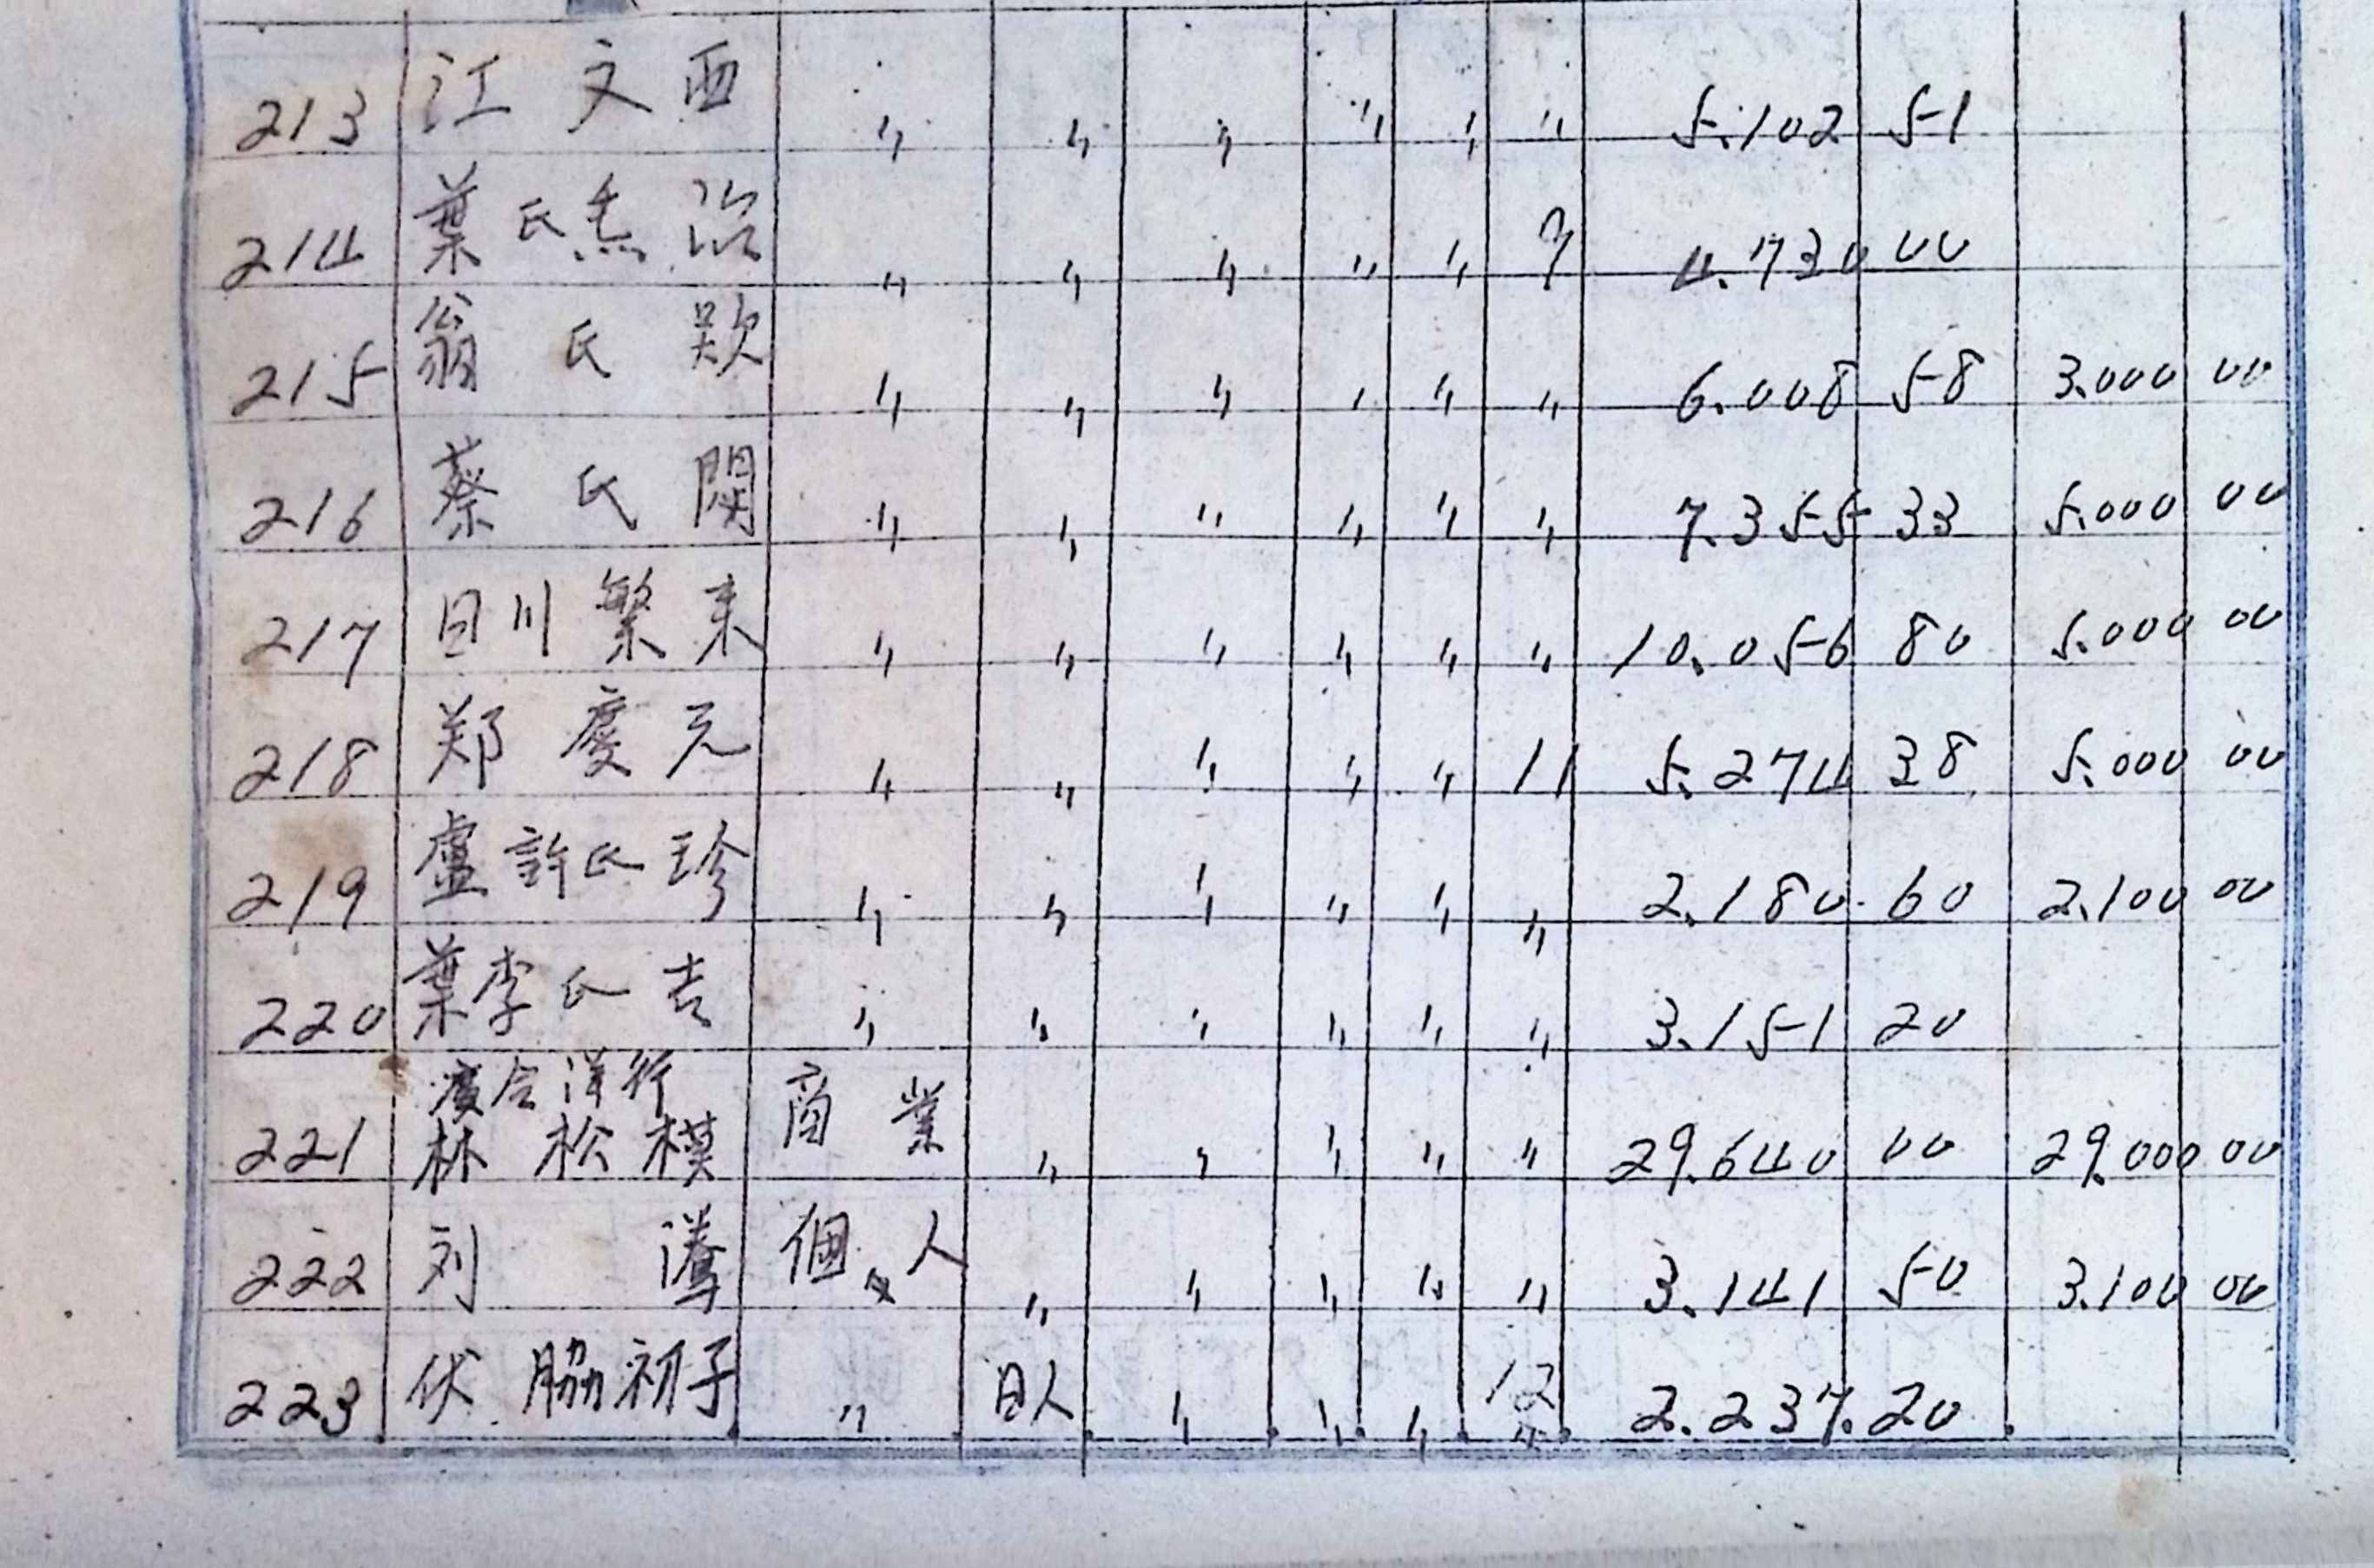 213 江文西 〃 〃 〃 〃 〃 〃 5.102 51
214 葉氏 治 〃 〃 〃 〃 〃 7 4.730 00
215 翁氏款 〃 〃 〃 〃 〃 〃 6.008 58 3.000 00
216 蔡氏 〃 〃 〃 〃 〃 〃 7.355 33 5.000 00
217 日川繁来 〃 〃 〃 〃 〃 〃 10.056 80 5.000 00
218 郑慶元 〃 〃 〃 〃 〃 11 5.274 38 5.000 00
219 盧許氏珍 〃 〃 〃 〃 〃 〃 2.180 60 2.100 00
220 葉李氏吉 〃 〃 〃 〃 〃 〃 3.151 20
洋行
221 林松模 商業 〃 〃 〃 〃 〃 29.640 00 29.000 00
222 刘 個人 〃 〃 〃 〃 〃 3.141 50 3.100 00
223 伏脇初子 〃 日人 〃 〃 〃 12 2.237.20